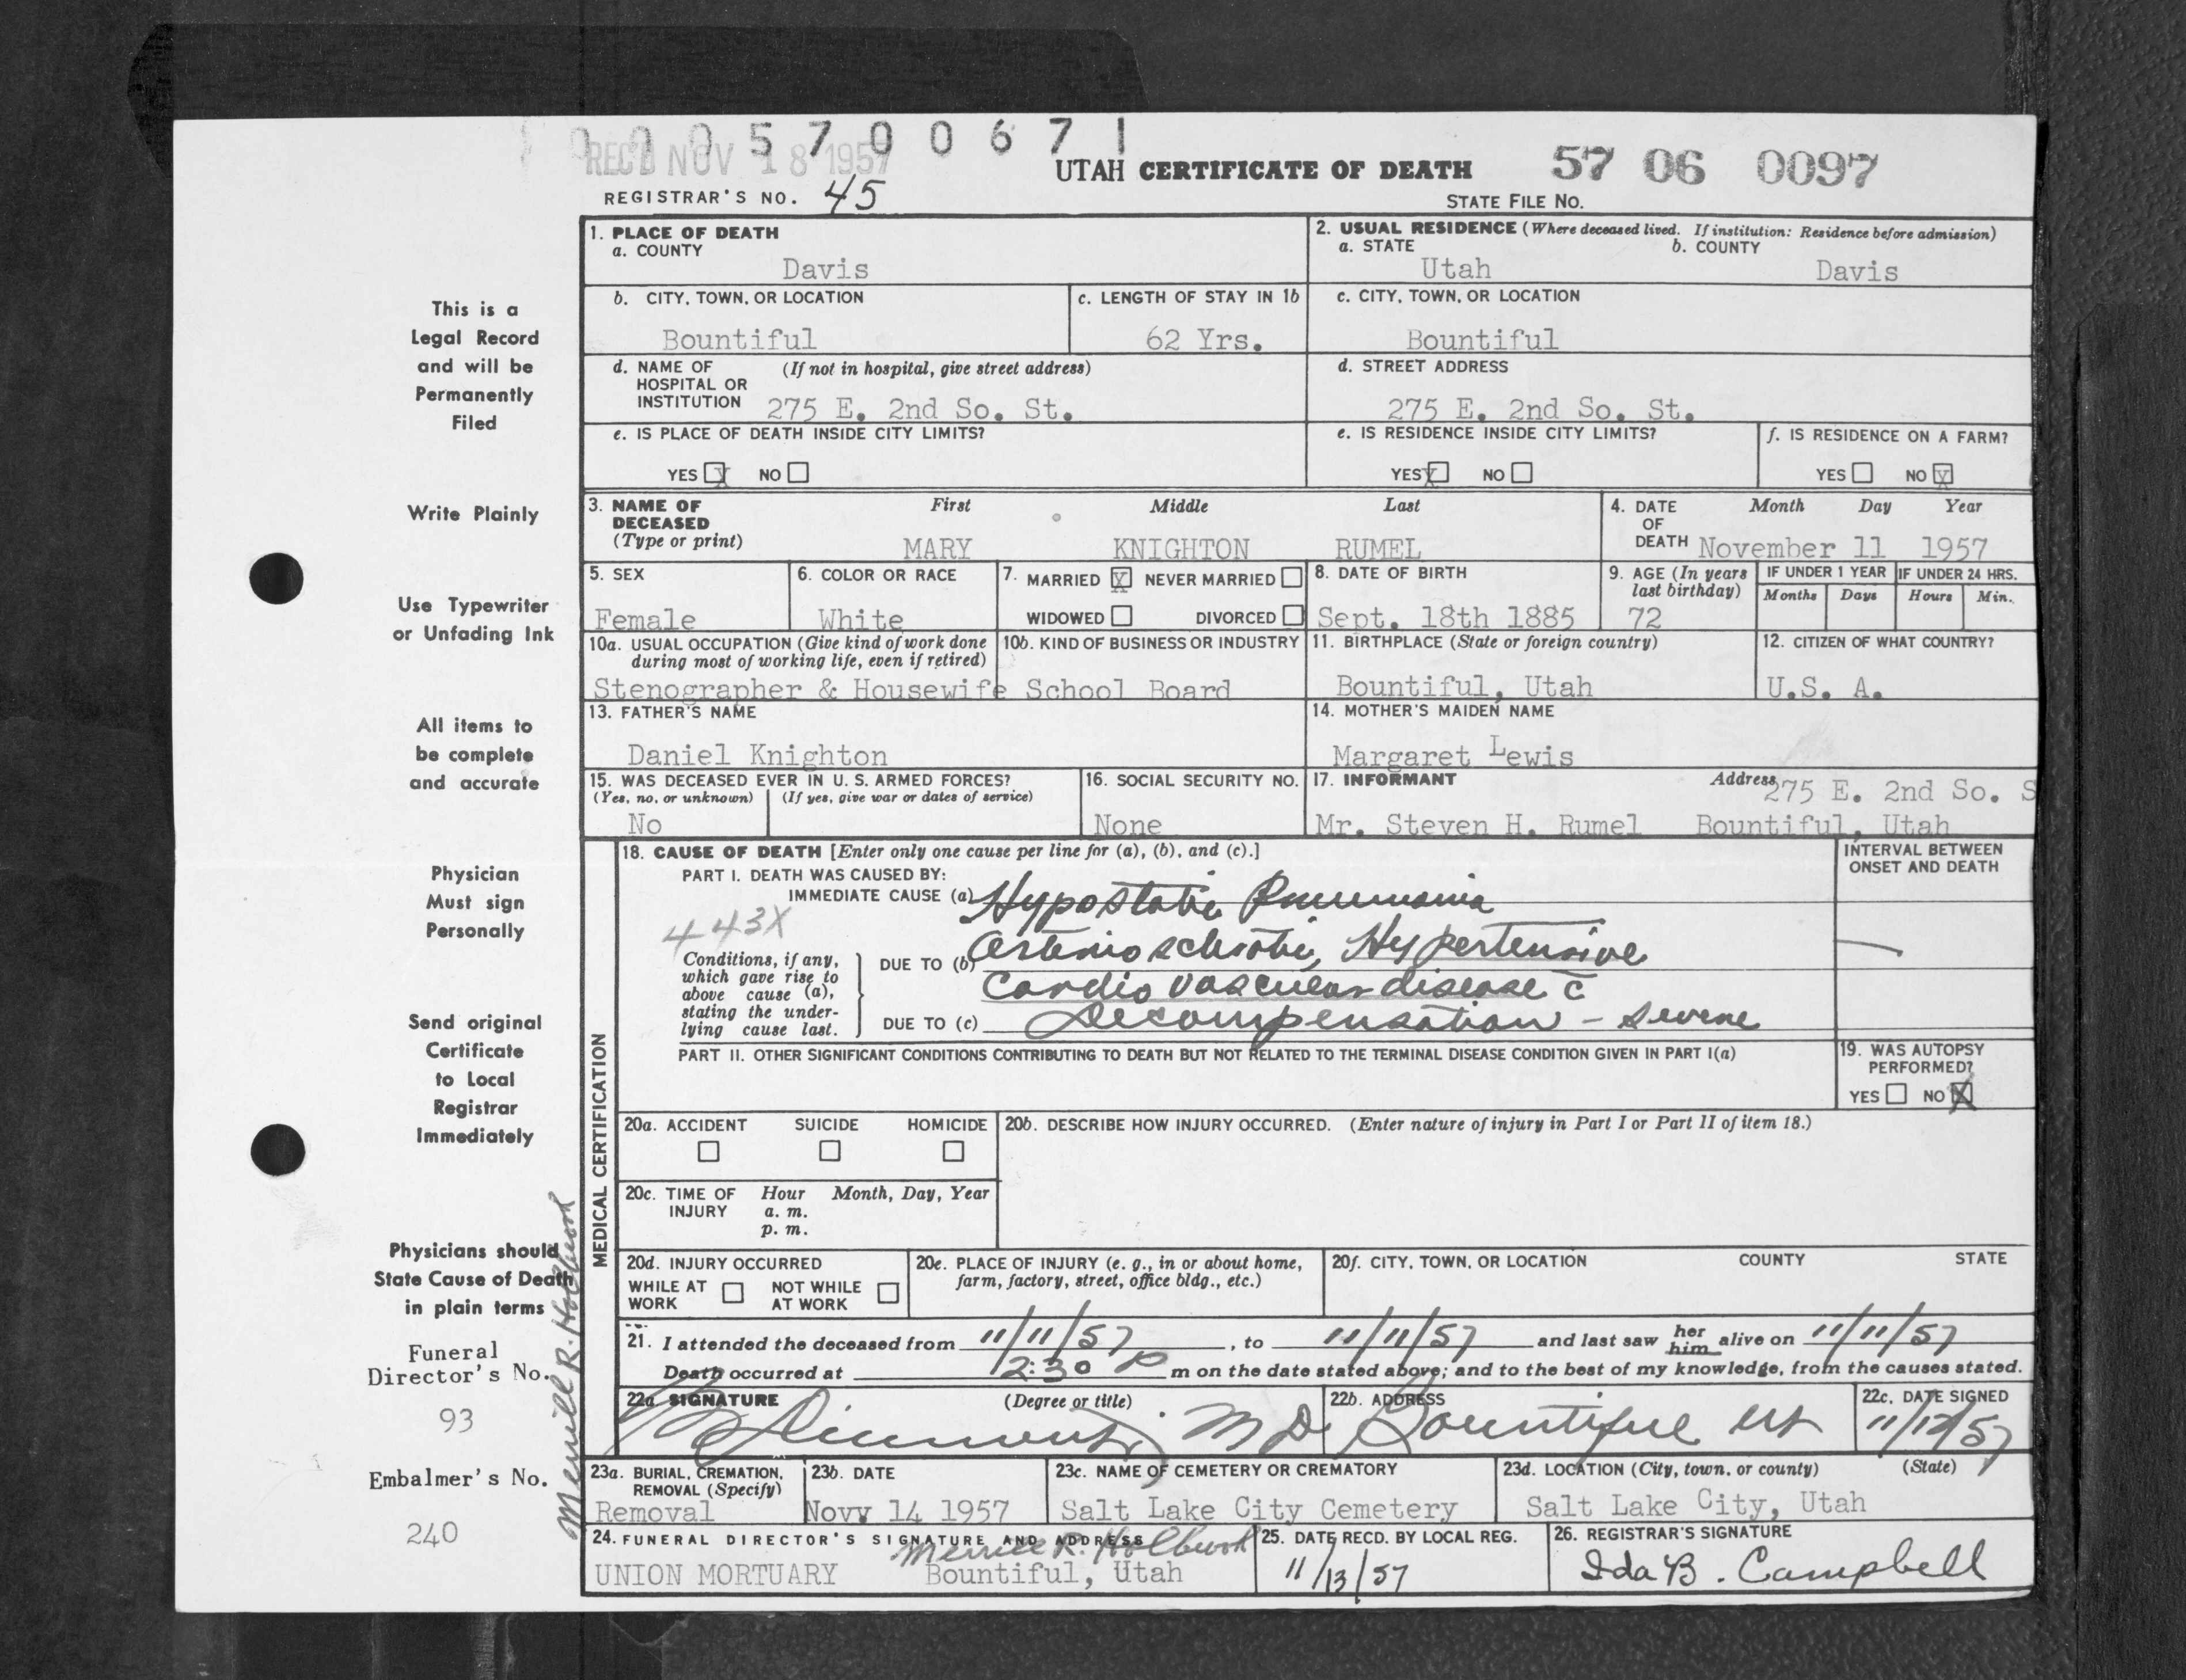 0 0 0 5 7 0 0 6 7 1
REC'D NOV 18 1957
UTAH CERTIFICATE OF DEATH 57 06 0097
REGISTRAR'S NO. 45 STATE FILE NO.
1. PLACE OF DEATH
a. COUNTY
Davis
2. USUAL RESIDENCE (Where deceased lived. If institution: Residence before admission)
a. STATE b. COUNTY
Utah Davis
b. CITY, TOWN, OR LOCATION
Bountiful
c. LENGTH OF STAY IN 1b
62 Yrs.
c. CITY, TOWN, OR LOCATION
Bountiful
d. NAME OF (If not in hospital, give street address)
HOSPITAL OR
INSTITUTION 275 E. 2nd So. St.
d. STREET ADDRESS
275 E. 2nd So. St.
e. IS PLACE OF DEATH INSIDE CITY LIMITS?
YES X NO
e. IS RESIDENCE INSIDE CITY LIMITS?
YES X NO
f. IS RESIDENCE ON A FARM?
YES NO X
3. NAME OF First Middle Last
DECEASED
(Type or print) MARY KNIGHTON RUMEL
4. DATE Month Day Year
OF
DEATH November 11 1957
5. SEX
Female
6. COLOR OR RACE
White
7. MARRIED X NEVER MARRIED
WIDOWED DIVORCED
8. DATE OF BIRTH
Sept. 18th 1885
9. AGE (In years
last birthday)
72
IF UNDER 1 YEAR IF UNDER 24 HRS.
Months Days Hours Min.
10a. USUAL OCCUPATION (Give kind of work done
during most of working life, even if retired)
Stenographer & Housewife
10b. KIND OF BUSINESS OR INDUSTRY
School Board
11. BIRTHPLACE (State or foreign country)
Bountiful, Utah
12. CITIZEN OF WHAT COUNTRY?
U.S. A.
13. FATHER'S NAME
Daniel Knighton
14. MOTHER'S MAIDEN NAME
Margaret Lewis
15. WAS DECEASED EVER IN U. S. ARMED FORCES?
(Yes, no, or unknown) (If yes, give war or dates of service)
No
16. SOCIAL SECURITY NO.
None
17. INFORMANT Address
275 E. 2nd So. S
Mr. Steven H. Rumel Bountiful, Utah
MEDICAL CERTIFICATION
18. CAUSE OF DEATH [Enter only one cause per line for (a), (b), and (c).]
PART I. DEATH WAS CAUSED BY:
IMMEDIATE CAUSE (a) Hypostatic Pneumonia
443X
Conditions, if any,
which gave rise to
above cause (a),
stating the under-
lying cause last.
DUE TO (b) Arteriosclerotic, Hypertensive
Cardio vascular disease c̄
DUE TO (c) Decompensation - severe
INTERVAL BETWEEN
ONSET AND DEATH
PART II. OTHER SIGNIFICANT CONDITIONS CONTRIBUTING TO DEATH BUT NOT RELATED TO THE TERMINAL DISEASE CONDITION GIVEN IN PART I(a)
19. WAS AUTOPSY
PERFORMED?
YES NO X
20a. ACCIDENT SUICIDE HOMICIDE
20b. DESCRIBE HOW INJURY OCCURRED. (Enter nature of injury in Part I or Part II of item 18.)
20c. TIME OF Hour Month, Day, Year
INJURY a. m.
p. m.
20d. INJURY OCCURRED
WHILE AT NOT WHILE
WORK AT WORK
20e. PLACE OF INJURY (e. g., in or about home,
farm, factory, street, office bldg., etc.)
20f. CITY, TOWN, OR LOCATION COUNTY STATE
21. I attended the deceased from 11/11/57, to 11/11/57 and last saw her him alive on 11/11/57
Death occurred at 12:30 P m on the date stated above; and to the best of my knowledge, from the causes stated.
22a SIGNATURE (Degree or title)
M D
22b. ADDRESS
Bountiful Ut
22c. DATE SIGNED
11/12/57
23a. BURIAL, CREMATION,
REMOVAL (Specify)
Removal
23b. DATE
Novv 14 1957
23c. NAME OF CEMETERY OR CREMATORY
Salt Lake City Cemetery
23d. LOCATION (City, town, or county) (State)
Salt Lake City, Utah
24. FUNERAL DIRECTOR'S SIGNATURE AND ADDRESS
Merrill R. Holbrook
UNION MORTUARY Bountiful, Utah
25. DATE RECD. BY LOCAL REG.
11/13/57
26. REGISTRAR'S SIGNATURE
Ida B. Campbell
This is a
Legal Record
and will be
Permanently
Filed
Write Plainly
Use Typewriter
or Unfading Ink
All items to
be complete
and accurate
Physician
Must sign
Personally
Send original
Certificate
to Local
Registrar
Immediately
Physicians should
State Cause of Death
in plain terms
Funeral
Director's No.
93
Embalmer's No.
240
Merrill R. Holbrook